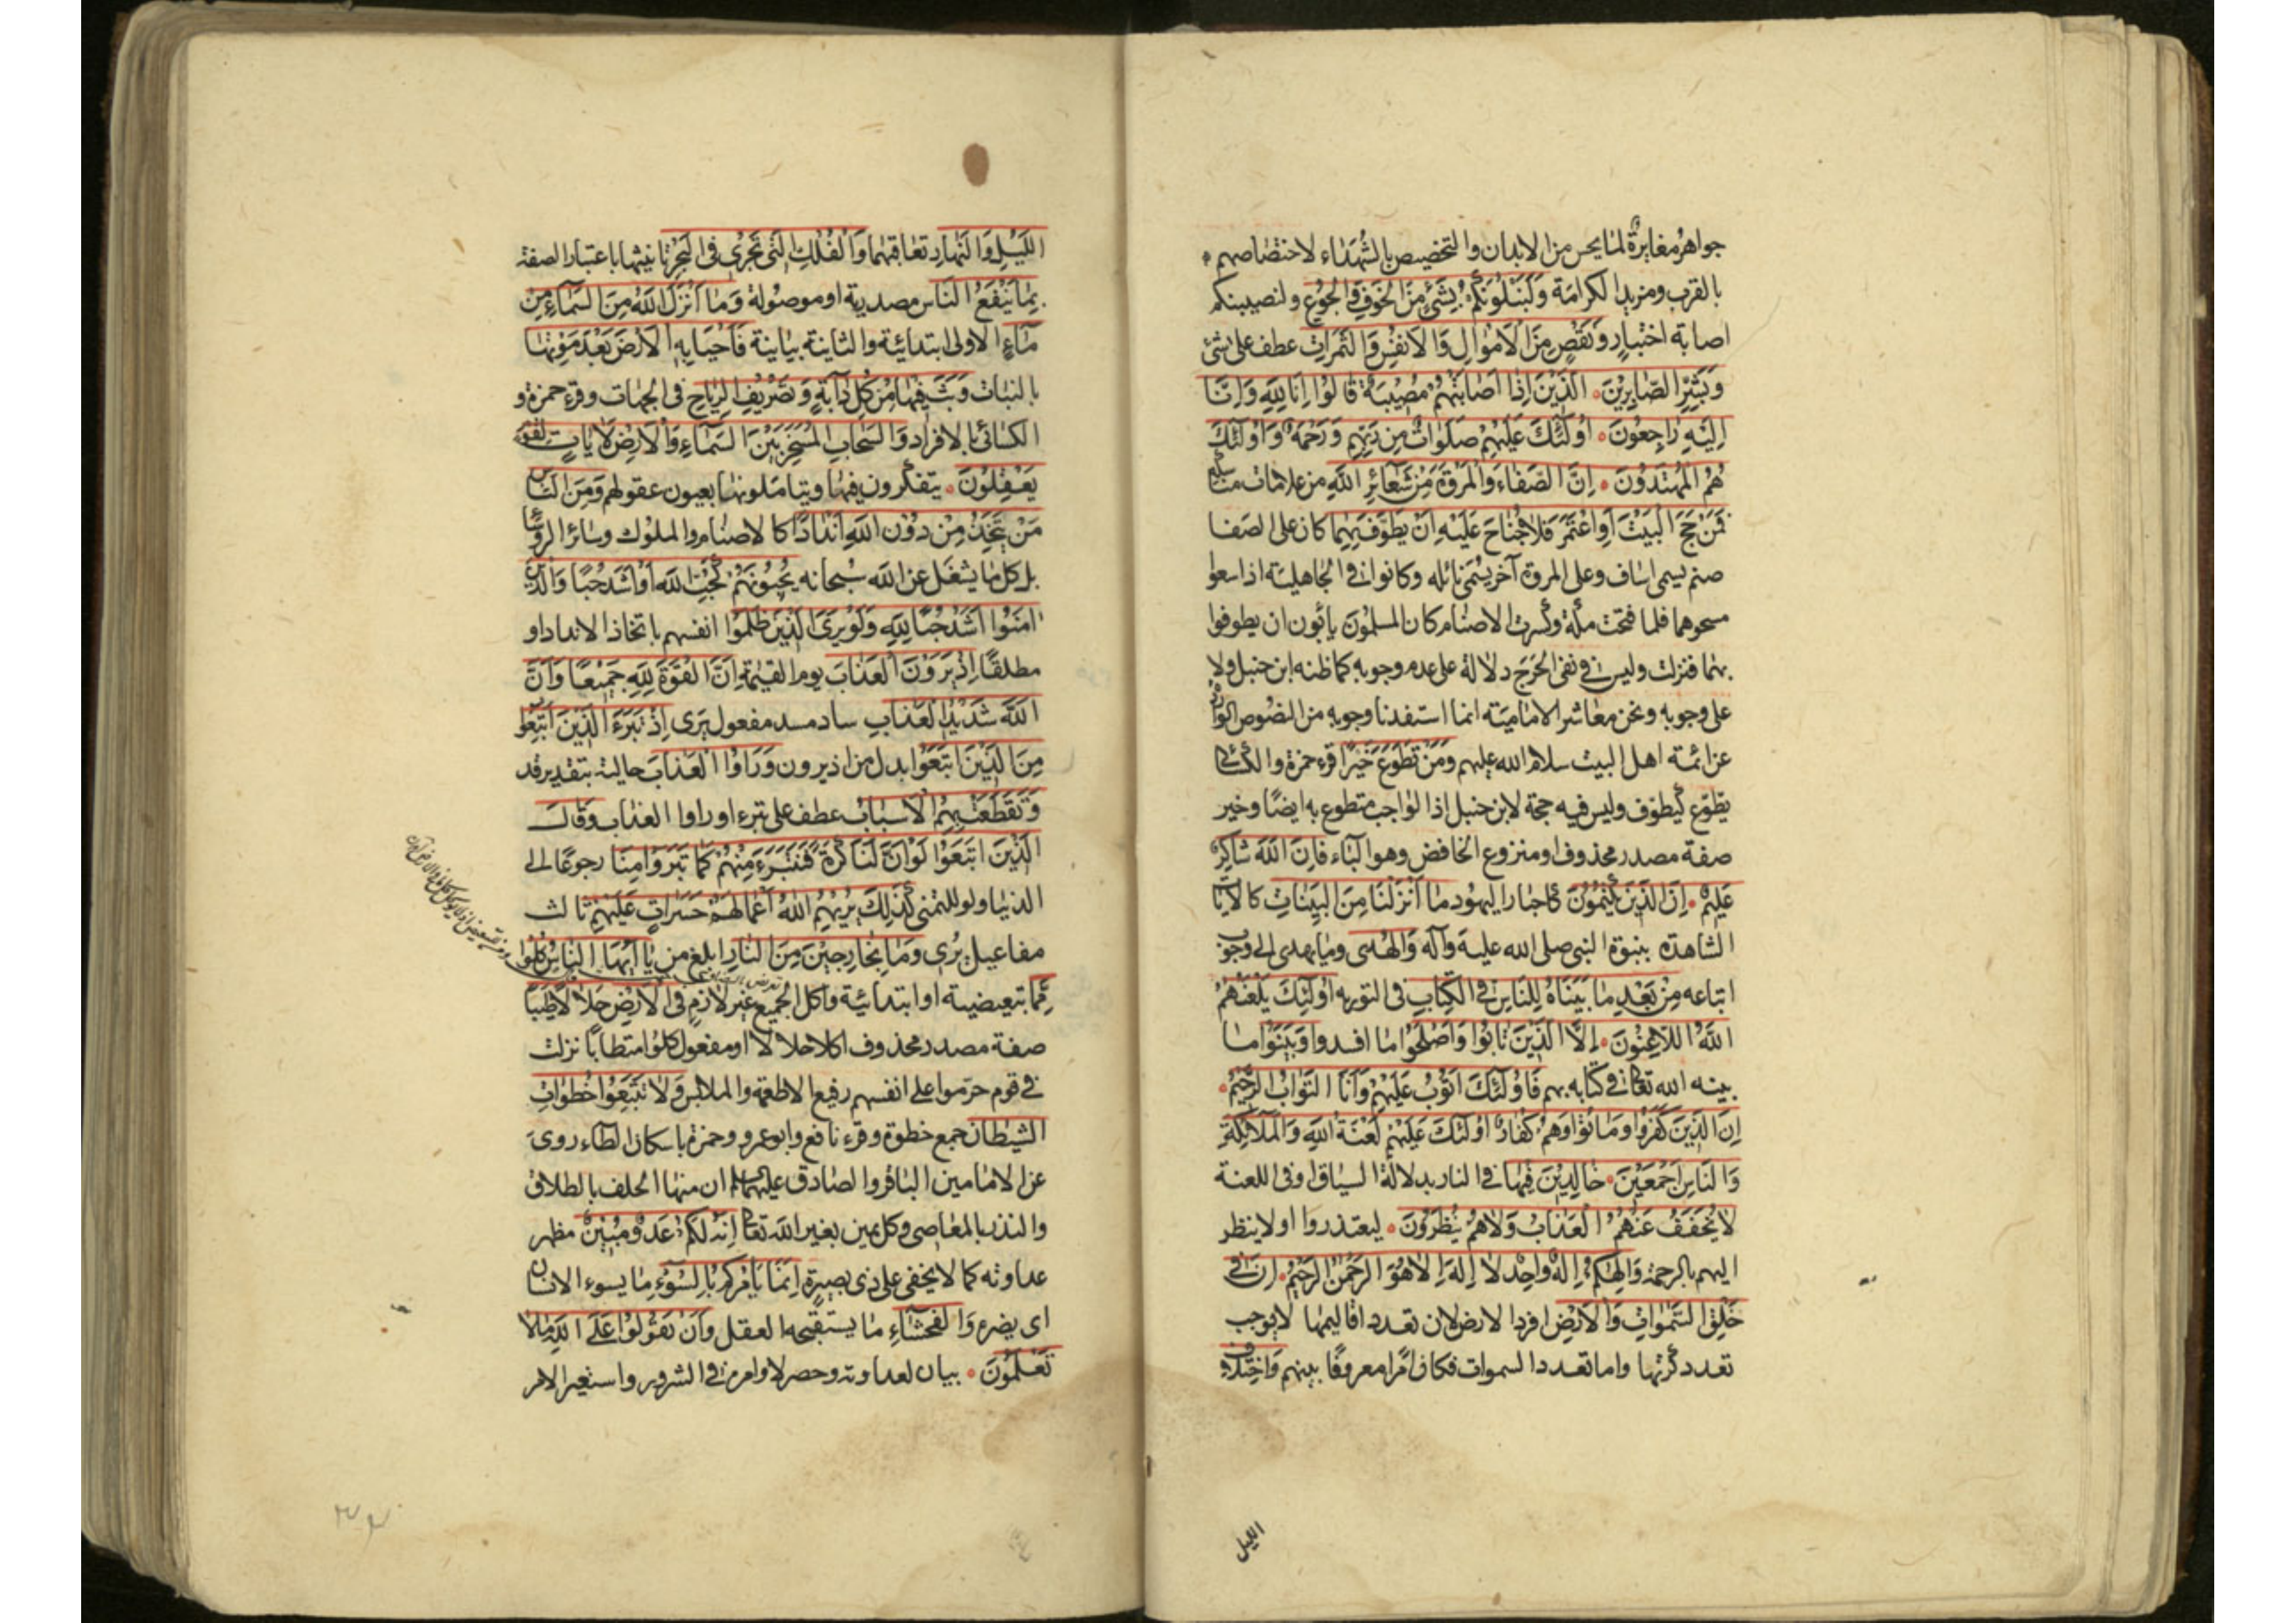 جواهر مغايرة لما يحس من الابدان والتخصيص بالشهداء لاختصاصهم
بالقرب ومزيد الكرامة وَلَنَبْلُوَنَّكُمْ بِشَيْءٍ مِنَ الْخَوْفِ وَالْجُوعِ ولنصيبنكم
اصابة اختبار وَنَقْصٍ مِنَ الْاَمْوَالِ وَالْاَنْفُسِ وَالثَّمَرَاتِ عطف على شئ
وَبَشِّرِ الصَّابِرِينَ الَّذِينَ اِذَا اَصَابَتْهُمْ مُصِيبَةٌ قَالُوا اِنَّا لِلَّهِ وَاِنَّا
اِلَيْهِ رَاجِعُونَ اُولَئِكَ عَلَيْهِمْ صَلَوَاتٌ مِنْ رَبِّهِمْ وَرَحْمَةٌ وَاُولَئِكَ
هُمُ الْمُهْتَدُونَ اِنَّ الصَّفَاءَ وَالْمَرْوَةَ مِنْ شَعَائِرِ اللَّهِ من علامات مناسكه
فَمَنْ حَجَّ الْبَيْتَ اَوِ اعْتَمَرَ فَلَا جُنَاحَ عَلَيْهِ اَنْ يَطَّوَّفَ بِهِمَا كان على الصفا
صنم يسمى اساف وعلى المروة آخر يسمى نائله وكانوا في الجاهلية اذا سعوا
مسحوهما فلما فتحت مكة وكسرت الاصنام كان المسلمون يأبون ان يطوفوا
بهما فنزلت وليس في نفى الحرج دلالة على عدم وجوبه كما ظنه ابن حنبل ولا
على وجوبه ونحن معاشر الامامية انما استفدنا وجوبه من النصوص الواردة
عن ائمة اهل البيت سلام الله عليهم وَمَنْ تَطَوَّعَ خَيْرًا قرء حمزة والكسائي
يطوع كيطوف وليس فيه حجة لابن حنبل اذ الواجب متطوع به ايضًا وخير
صفة مصدر محذوف او منزوع الخافض وهو الباء فَاِنَّ اللَّهَ شَاكِرٌ
عَلِيمٌ اِنَّ الَّذِينَ يَكْتُمُونَ كاحبار اليهود مَا اَنْزَلْنَا مِنَ الْبَيِّنَاتِ كالآيات
الشاهدة بنبوة النبى صلى الله عليه وآله وَالْهُدَى وما يهدى الى وجوب
اتباعه مِنْ بَعْدِ مَا بَيَّنَّاهُ لِلنَّاسِ فِي الْكِتَابِ فى التوريه اُولَئِكَ يَلْعَنُهُمُ
اللَّهُ اللَّاعِنُونَ اِلَّا الَّذِينَ تَابُوا وَاَصْلَحُوا ما افسدوا وَبَيَّنُوا ما
بينه الله تعالى في كتابه بهم فَاُولَئِكَ اَتُوبُ عَلَيْهِمْ وَاَنَا التَّوَّابُ الرَّحِيمُ
اِنَّ الَّذِينَ كَفَرُوا وَمَاتُوا وَهُمْ كُفَّارٌ اُولَئِكَ عَلَيْهِمْ لَعْنَةُ اللَّهِ وَالْمَلَائِكَةِ
وَالنَّاسِ اَجْمَعِينَ خَالِدِينَ فِيهَا في النار بدلالة السياق او في اللعنة
لَا يُخَفَّفُ عَنْهُمُ الْعَذَابُ وَلَا هُمْ يُنْظَرُونَ ليعتذروا او لا ينظر
اليهم بالرحمة وَاِلَهُكُمْ اِلَهٌ وَاحِدٌ لَا اِلَهَ اِلَّا هُوَ الرَّحْمَنُ الرَّحِيمُ اِنَّ فِي
خَلْقِ السَّمَوَاتِ وَالْاَرْضِ افرد الارض لان تعدد اقاليمها لا يوجب
تعدد كرتها واما تعدد السموات فكان امرا معروفًا بينهم وَاخْتِلَافِ
الليل
اللَّيْلِ وَالنَّهَارِ تعاقبهما وَالْفُلْكِ الَّتِي تَجْرِي فِي الْبَحْرِ تانيثها باعتبار الصفة
بِمَا يَنْفَعُ النَّاسَ مصدرية او موصولة وَمَا اَنْزَلَ اللَّهُ مِنَ السَّمَاءِ مِنْ
مَاءٍ الاولى ابتدائية والثانية بيانية فَاَحْيَا بِهِ الْاَرْضَ بَعْدَ مَوْتِهَا
بالنبات وَبَثَّ فِيهَا مِنْ كُلِّ دَابَّةٍ وَتَصْرِيفِ الرِّيَاحِ فى الجهات وقرء حمزة و
الكسائى بالافراد وَالسَّحَابِ الْمُسَخَّرِ بَيْنَ السَّمَاءِ وَالْاَرْضِ لَآيَاتٍ لِقَوْمٍ
يَعْقِلُونَ يتفكرون فيها ويتاملونها بعيون عقولهم وَمِنَ النَّاسِ
مَنْ يَتَّخِذُ مِنْ دُونِ اللَّهِ اَنْدَادًا كالاصنام والملوك وسائر الرؤسا
بل كل ما يشغل عن الله سبحانه يُحِبُّونَهُمْ كَحُبِّ اللَّهِ او اشد حبا وَالَّذِينَ
اٰمَنُوا اَشَدُّ حُبًّا لِلَّهِ وَلَوْ يَرَى الَّذِينَ ظَلَمُوا انفسهم باتخاذ الانداد او
مطلقًا اِذْ يَرَوْنَ الْعَذَابَ يوم القيمة اَنَّ الْقُوَّةَ لِلَّهِ جَمِيعًا وَاَنَّ
اللَّهَ شَدِيدُ الْعَذَابِ ساد مسد مفعول يرى اِذْ تَبَرَّءَ الَّذِينَ اتُّبِعُوا
مِنَ الَّذِينَ اتَّبَعُوا بدل من اذ يرون وَرَاَوُا الْعَذَابَ حالية بتقدير قد
وَتَقَطَّعَتْ بِهِمُ الْاَسْبَابُ عطف على تبرء او راوا العذاب وَقَالَ
الَّذِينَ اتَّبَعُوا لَوْ اَنَّ لَنَا كَرَّةً فَنَتَبَرَّءَ مِنْهُمْ كَمَا تَبَرَّؤُا مِنَّا رجوعًا الى
الدنيا ولو للتمنى كَذَلِكَ يُرِيهِمُ اللَّهُ اَعْمَالَهُمْ حَسَرَاتٍ عَلَيْهِمْ ثالث
مفاعيل يرى وَمَا هُمْ بِخَارِجِينَ مِنَ النَّارِ ابلغ من يَا اَيُّهَا النَّاسُ كُلُوا
مِمَّا تبعيضية او ابتدائية واكل الجميع غير لازم فِي الْاَرْضِ حَلَالًا طَيِّبًا
صفة مصدر محذوف اكلا حلالا او مفعول كلوا مستطابًا نزلت
في قوم حرموا على انفسهم رفيع الاطعمة والملابس وَلَا تَتَّبِعُوا خُطُوَاتِ
الشَّيْطَانِ جمع خطوة وقرء نافع وابو عمرو وحمزة باسكان الطاء روى
عن الامامين الباقر والصادق عليهما السلام ان منها الحلف بالطلاق
والنذر بالمعاصى وكل يمين بغير الله تعالى اِنَّهُ لَكُمْ عَدُوٌّ مُبِينٌ مظهر
عداوته كما لا يخفى على ذى بصيرة اِنَّمَا يَاْمُرُكُمْ بِالسُّوءِ ما يسوء الانسان
اى يضره وَالْفَحْشَاءِ ما يستقبحه العقل وَاَنْ تَقُولُوا عَلَى اللَّهِ مَا لَا
تَعْلَمُونَ بيان لعداوته وحصر لاوامره في الشرور واستعير الامر